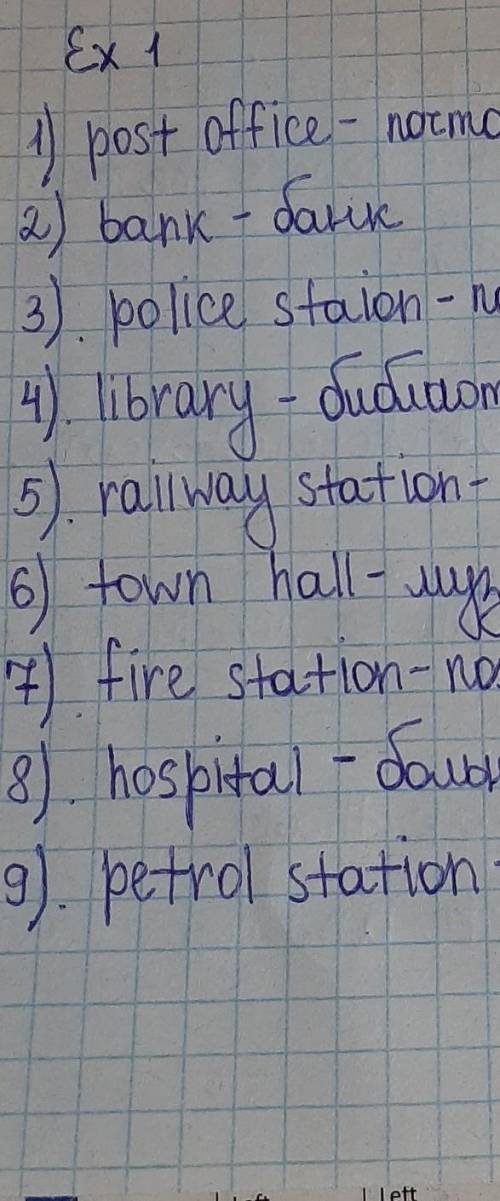 Ex 1
1) post office - почто
2) bank - банк
3). police staion - по
4). library - библиот
5). railway station -
6) town hall - муз
7). fire station - по
8). hospital - больн
9). petrol station -
Left